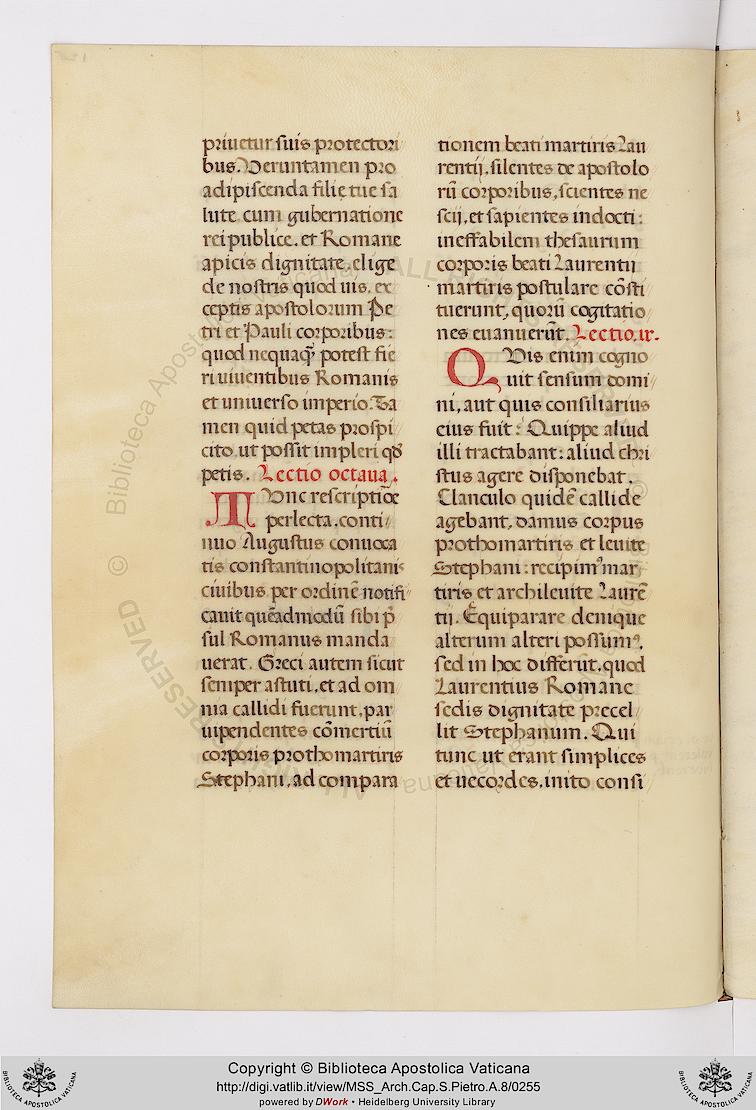 priuetur suis protectori
bus. Veruntamen pro
adipiscenda filię tuę sa
lute cum gubernatione
rei publice. et Romane
apicis dignitate. elige
de nostris quod uis. ex
ceptis apostolorum Pe
tri et Pauli corporibus:
quod nequaq̃ potest fie
ri uiuentibus Romanis
et uniuerso imperio. Ta
men quid petas prospi
cito. ut possit impleri qđ
petis. Lectio octaua.
TVnc rescriptiõe
perlecta. conti/
nuo Augustus conuoca
tis constantinopolitanis
ciuibus per ordinẽ notifi
cauit quẽadmodũ sibi p̃
sul Romanus manda
uerat. Greci autem sicut
semper astuti. et ad om
nia callidi fuerunt. par
uipendentes cõmertiũ
corporis prothomartiris
Stephani. ad compara
tionem beati martiris Lau
rentij. silentes de apostolo
rũ corporibus. scientes ne
scij. et sapientes indocti:
ineffabilem thesaurum
corporis beati Laurentii
martiris postulare cõsti
tuerunt. quorũ cogitatio
nes euanuerũt. Lectio. ix.
QVis enim cogno
uit sensum domi/
ni, aut quis consiliarius
eius fuit? Quippe aliud
illi tractabant: aliud chri
stus agere disponebat.
Clanculo quidẽ callide
agebant. damus corpus
prothomartiris et leuite
Stephani: recipimꝰ mar
tiris et archileuite Laurẽ
tij. Equiparare denique
alterum alteri possumꝰ.
sed in hoc differũt. quod
Laurentius Romane
sedis dignitate precel
lit Stephanum. Qui
tunc ut erant simplices
et uecordes. inito consi
Copyright © Biblioteca Apostolica Vaticana
http://digi.vatlib.it/view/MSS_Arch.Cap.S.Pietro.A.8/0255
powered by DWork • Heidelberg University Library